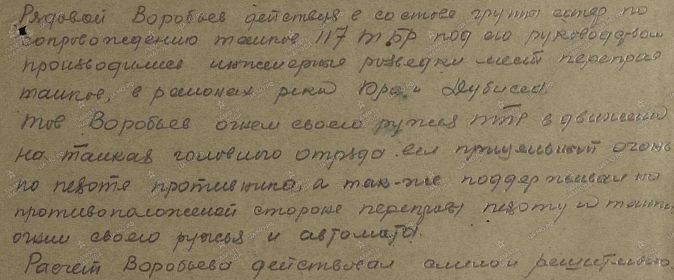 Рядовой Воробьев действуя в составе группы сапер по
сопровождению танков 117 ТБР под его руководством
производились инженерные розведки мест переправ
танков, в районах реки Юра и Дубисса.
Тов Воробьев огнем своего ружья ПТР в движении
на танках головного отряда вел прицельный огонь
по пехоте противника, а так-же поддерживал на
противоположеной стороне переправы пехоту и танки,
огнем своего ружья и автомата.
Расчет Воробьева действовал смело и решительно